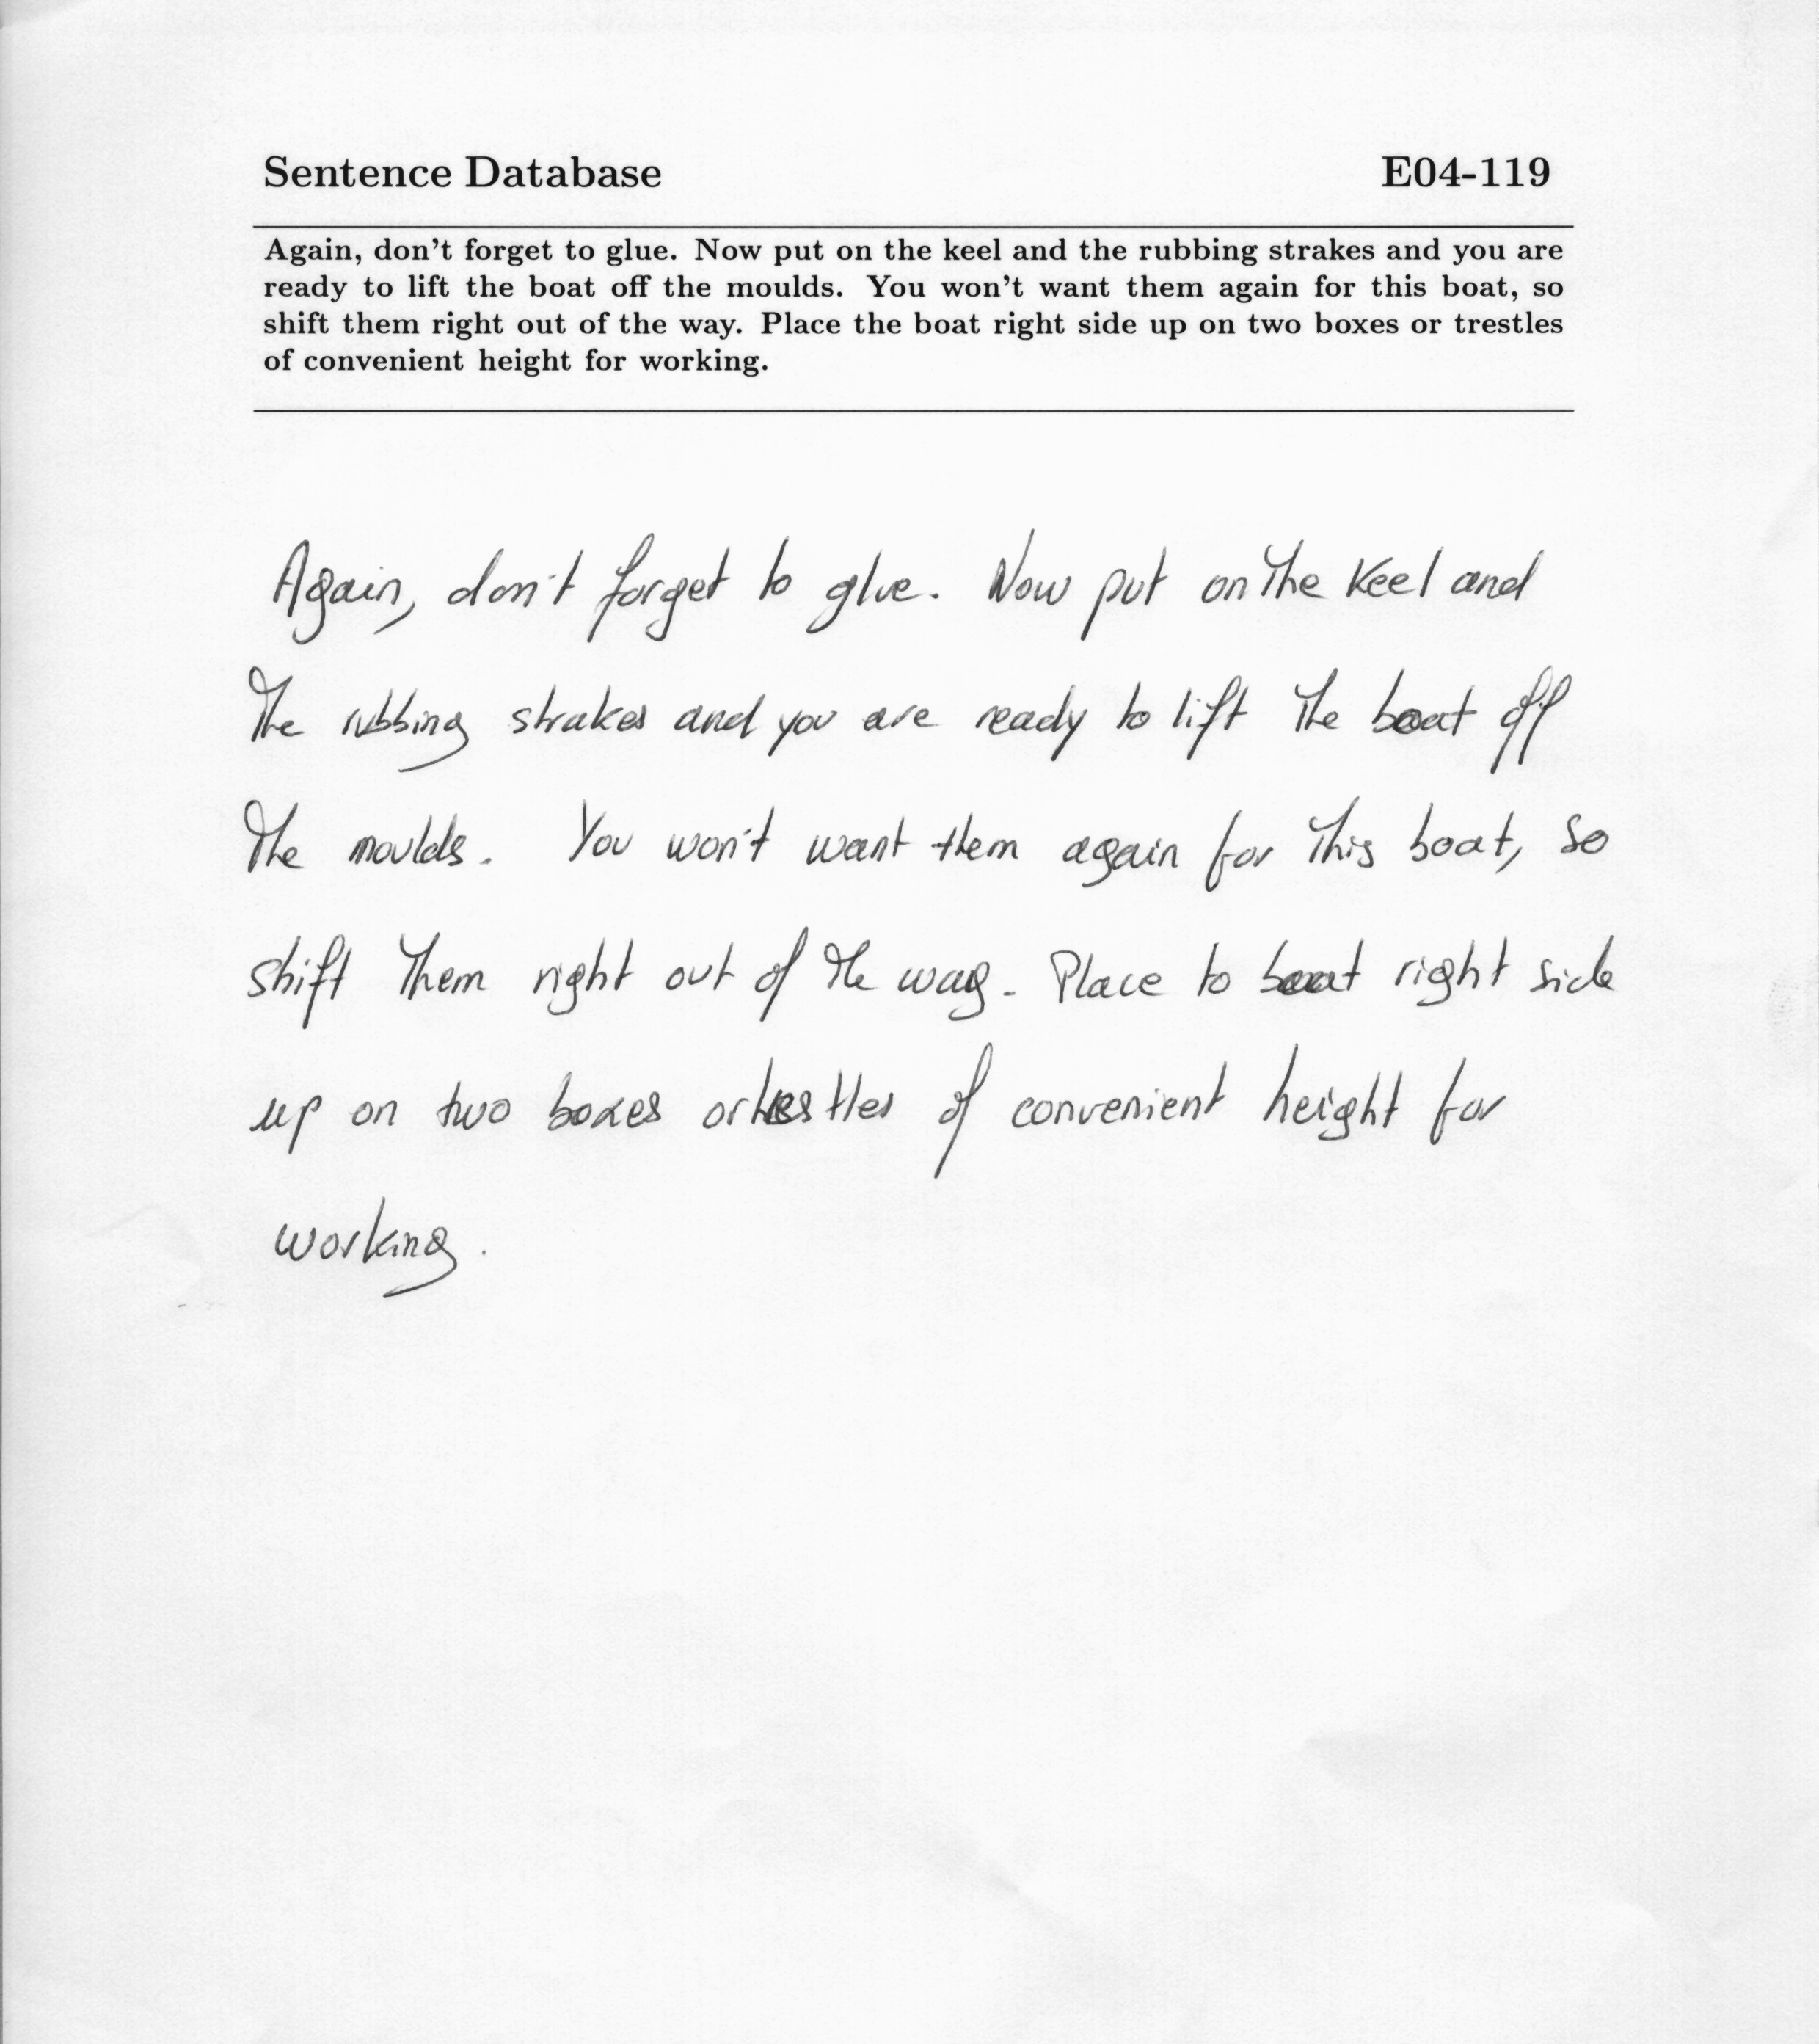 Sentence Database E04-119
Again, don't forget to glue. Now put on the keel and the rubbing strakes and you are
ready to lift the boat off the moulds. You won't want them again for this boat, so
shift them right out of the way. Place the boat right side up on two boxes or trestles
of convenient height for working.
Again, don't forget to glue. Now put on the keel and
the rubbing strakes and you are ready to lift the boat off
the moulds. You won't want them again for this boat, so
shift them right out of the way. Place to boat right side
up on two boxes or trestles of convenient height for
working.